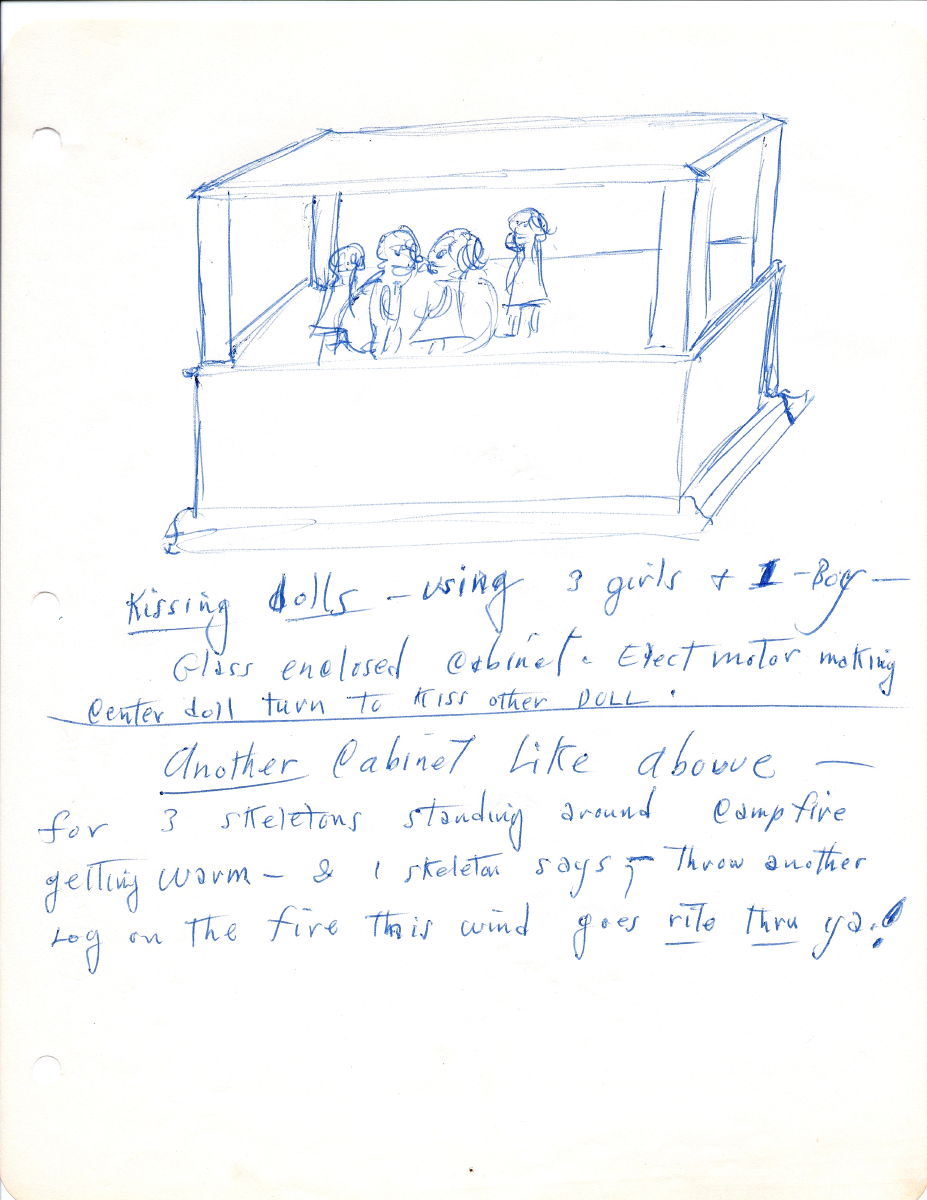 Kissing dolls - using 3 girls + 1 - Boy -
Glass enclosed Cabinet. Elect motor making
Center doll turn to Kiss other DOLL.
Another Cabinet Like abouve -
for 3 skeletons standing around Campfire
getting warm - & 1 skeleton says, - Throw another
Log on the fire This wind goes rite thru ya!